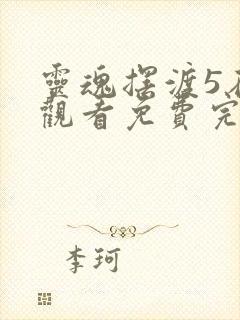 靈魂擺渡5在
觀看免費完
李珂